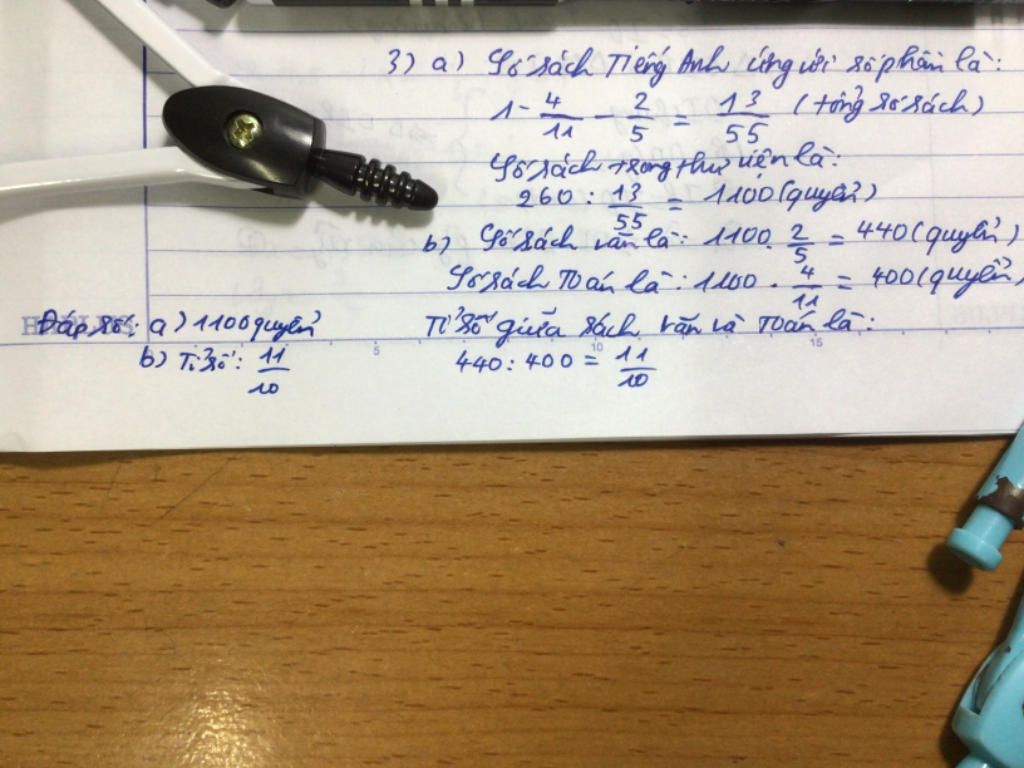 3) a) Số sách Tiếng Anh ứng với số phần là:
1 - 4/11 - 2/5 = 13/55 (tổng số sách)
Số sách trong thư viện là:
260 : 13/55 = 1100 (quyển)
b) Số sách văn là: 1100 . 2/5 = 440 (quyển)
Số sách Toán là: 1100 . 4/11 = 400 (quyển)
Tỉ số giữa sách văn và Toán là:
440 : 400 = 11/10
Đáp số: a) 1100 quyển
b) Tỉ số: 11/10
5 10 15